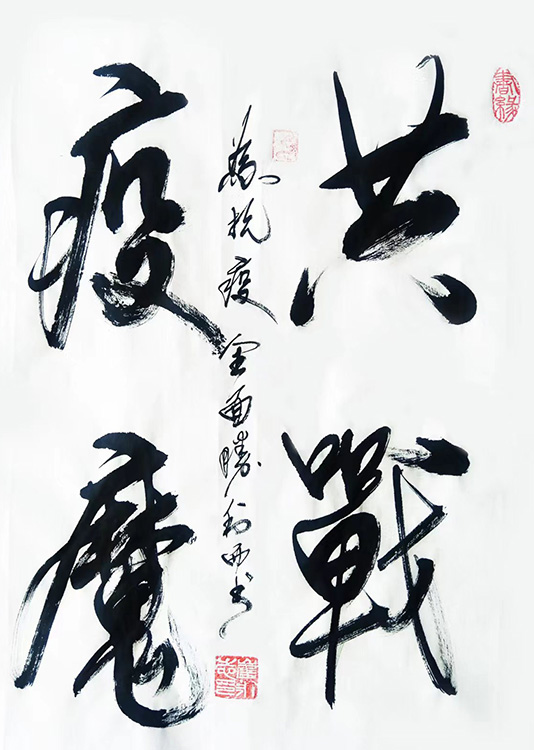 書緣
共戰
疫魔
為抗疫全面勝利而书